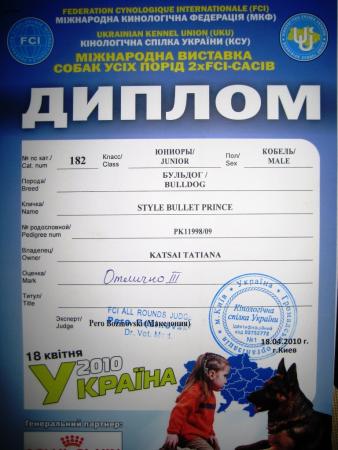 FEDERATION CYNOLOGIQUE INTERNATIONALE (FCI)
МІЖНАРОДНА КИНОЛОГІЧНА ФЕДЕРАЦІЯ (МКФ)
UKRAINIAN KENNEL UNION (UKU)
КІНОЛОГІЧНА СПІЛКА УКРАЇНИ (КСУ)
МІЖНАРОДНА ВИСТАВКА
СОБАК УСІХ ПОРІД 2хFCI-CACІВ
FCI
ДИПЛОМ
№ по кат./ Cat. num 182 Класс/ Class ЮНИОРЫ/ JUNIOR Пол/ Sex КОБЕЛЬ/ MALE
Порода/ Breed БУЛЬДОГ / BULLDOG
Кличка/ Name STYLE BULLET PRINCE
№ родословной/ Pedigree num РК11998/09
Владелец/ Owner KATSAI TATIANA
Оценка/ Mark Отлично III
Титул/ Title
FCI ALL ROUNDS JUDGE
Эксперт/ Judge Pero Bozinovski (Македония)
Dr. Vet. Med.
Україна
м.Київ
Кінологічна
спілка України
№1
18.04.2010 г.
г.Киев
18 квітня
2010
УКРАЇНА
Генеральний партнер:
ROYAL CANIN